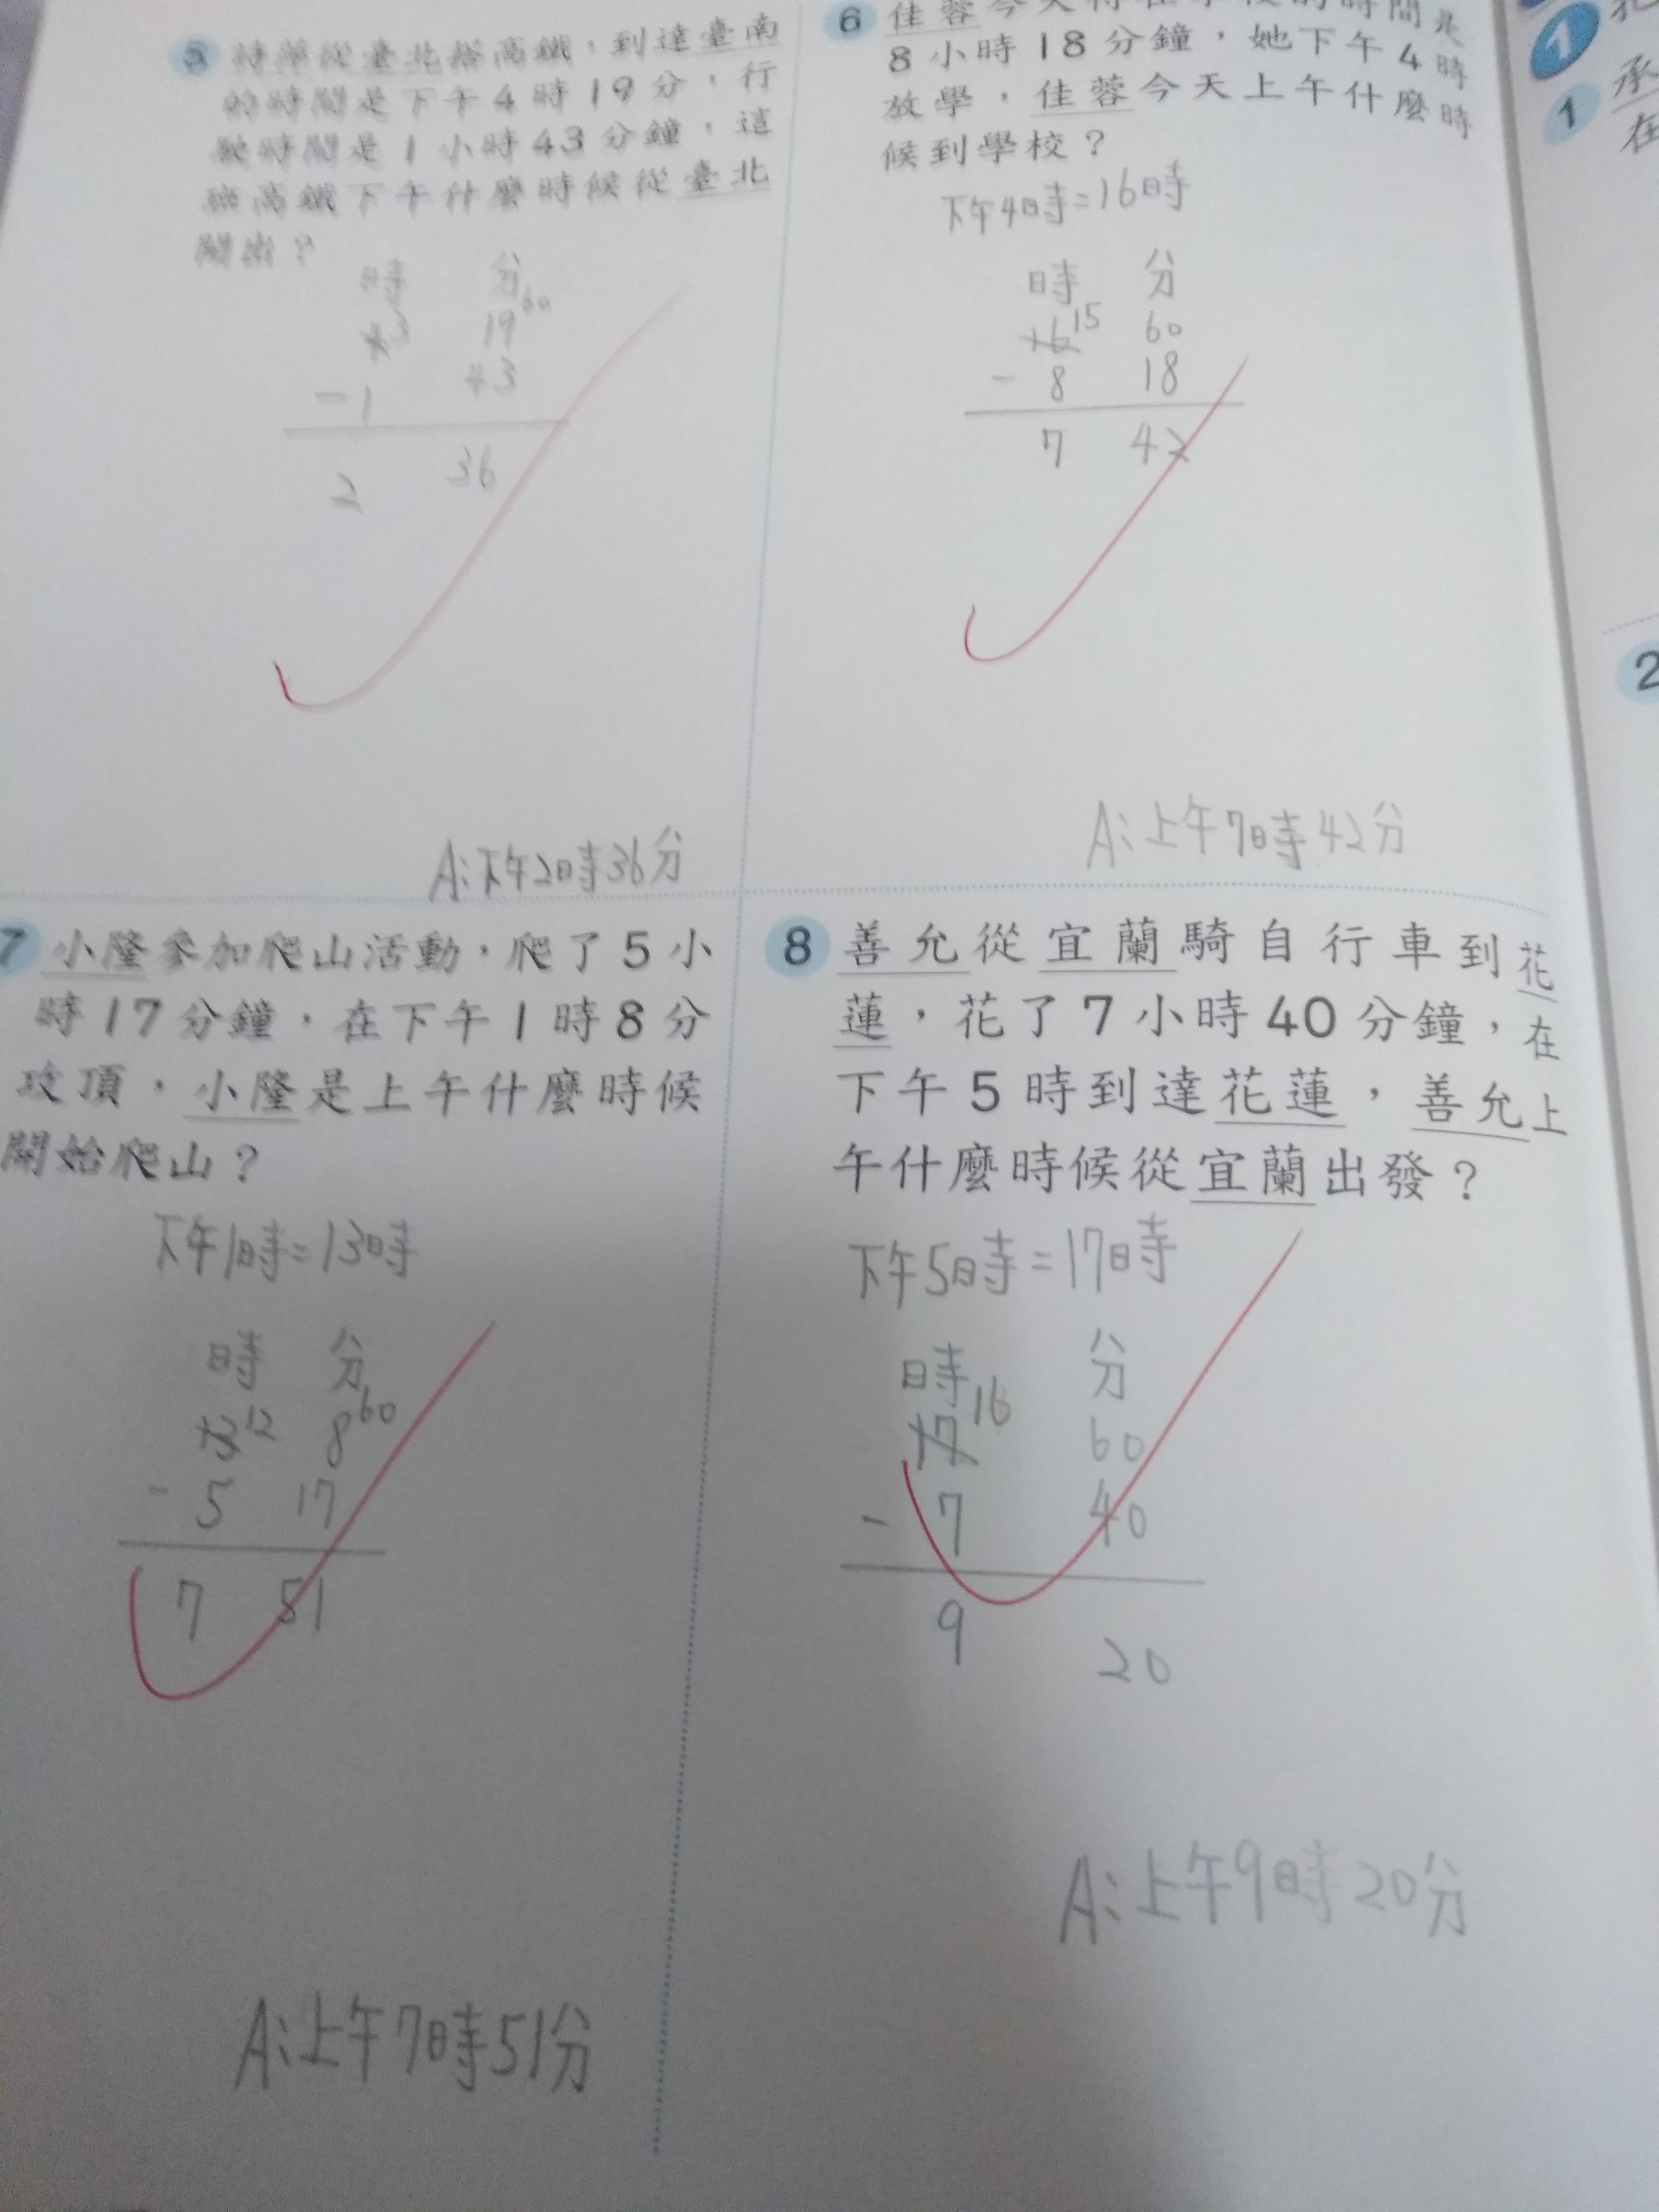 5 時華從臺北搭高鐵，到達臺南
的時間是下午4時19分，行
駛時間是1小時43分鐘，這
班高鐵下午什麼時候從臺北
開出？
時 分
4 3 19 60
－1 43
2 36
A：下午2時36分
6 佳蓉今天待在學校的時間是
8小時18分鐘，她下午4時
放學，佳蓉今天上午什麼時
候到學校？
下午4時=16時
時 分
16 15 60
－ 8 18
7 42
A：上午7時42分
7 小隆參加爬山活動，爬了5小
時17分鐘，在下午1時8分
攻頂，小隆是上午什麼時候
開始爬山？
下午1時=13時
時 分
13 12 8 60
－ 5 17
7 51
A：上午7時51分
8 善允從宜蘭騎自行車到花
蓮，花了7小時40分鐘，在
下午5時到達花蓮，善允上
午什麼時候從宜蘭出發？
下午5時=17時
時 分
17 16 60
－ 7 40
9 20
A：上午9時20分
1
1 承
在
2